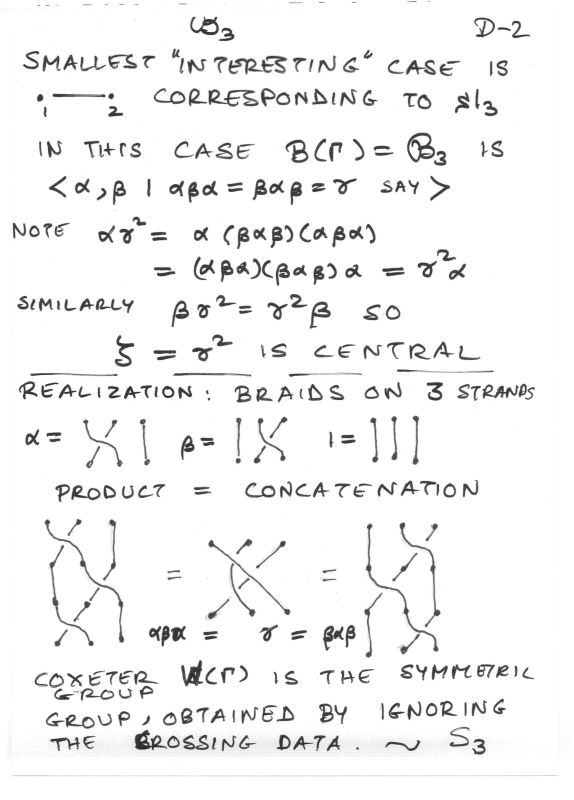 𝓑₃ D-2
SMALLEST "INTERESTING" CASE IS
1 2 CORRESPONDING TO sl₃
IN THIS CASE B(Γ) = 𝓑₃ IS
<α, β | αβα = βαβ = γ SAY>
NOTE αγ² = α (βαβ)(αβα)
= (αβα)(βαβ)α = γ²α
SIMILARLY βγ² = γ²β SO
ζ = γ² IS CENTRAL
REALIZATION: BRAIDS ON 3 STRANDS
α = β = 1 =
PRODUCT = CONCATENATION
= =
αβα = γ = βαβ
COXETER W(Γ) IS THE SYMMETRIC
GROUP
GROUP, OBTAINED BY IGNORING
THE CROSSING DATA. ~ S₃